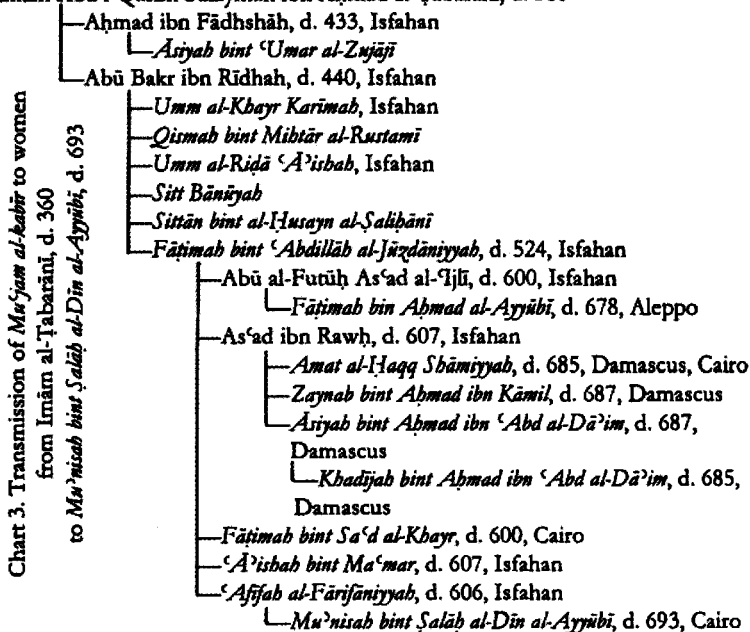 Aḥmad ibn Fādhshāh, d. 433, Isfahan
Āsiyah bint ʿUmar al-Zujājī
Abū Bakr ibn Rīdhah, d. 440, Isfahan
Umm al-Khayr Karīmah, Isfahan
Qismah bint Mihtār al-Rustamī
Umm al-Riḍā ʿĀʾishah, Isfahan
Sitt Bānūyah
Sittān bint al-Ḥusayn al-Ṣaliḥānī
Fāṭimah bint ʿAbdillāh al-Jūzdāniyyah, d. 524, Isfahan
Abū al-Futūḥ Asʿad al-ʿIjlī, d. 600, Isfahan
Fāṭimah bin Aḥmad al-Ayyūbī, d. 678, Aleppo
Asʿad ibn Rawḥ, d. 607, Isfahan
Amat al-Ḥaqq Shāmiyyah, d. 685, Damascus, Cairo
Zaynab bint Aḥmad ibn Kāmil, d. 687, Damascus
Āsiyah bint Aḥmad ibn ʿAbd al-Dāʾim, d. 687,
Damascus
Khadījah bint Aḥmad ibn ʿAbd al-Dāʾim, d. 685,
Damascus
Fāṭimah bint Saʿd al-Khayr, d. 600, Cairo
ʿĀʾishah bint Maʿmar, d. 607, Isfahan
ʿAfīfah al-Fārifāniyyah, d. 606, Isfahan
Muʾnisah bint Ṣalāḥ al-Dīn al-Ayyūbī, d. 693, Cairo
Chart 3. Transmission of Muʿjam al-kabīr to women
from Imām al-Ṭabarānī, d. 360
to Muʾnisah bint Ṣalāḥ al-Dīn al-Ayyūbī, d. 693